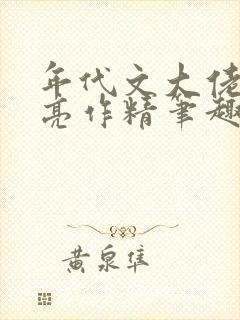 年代文大佬
亮作精笔趣
黄泉隼